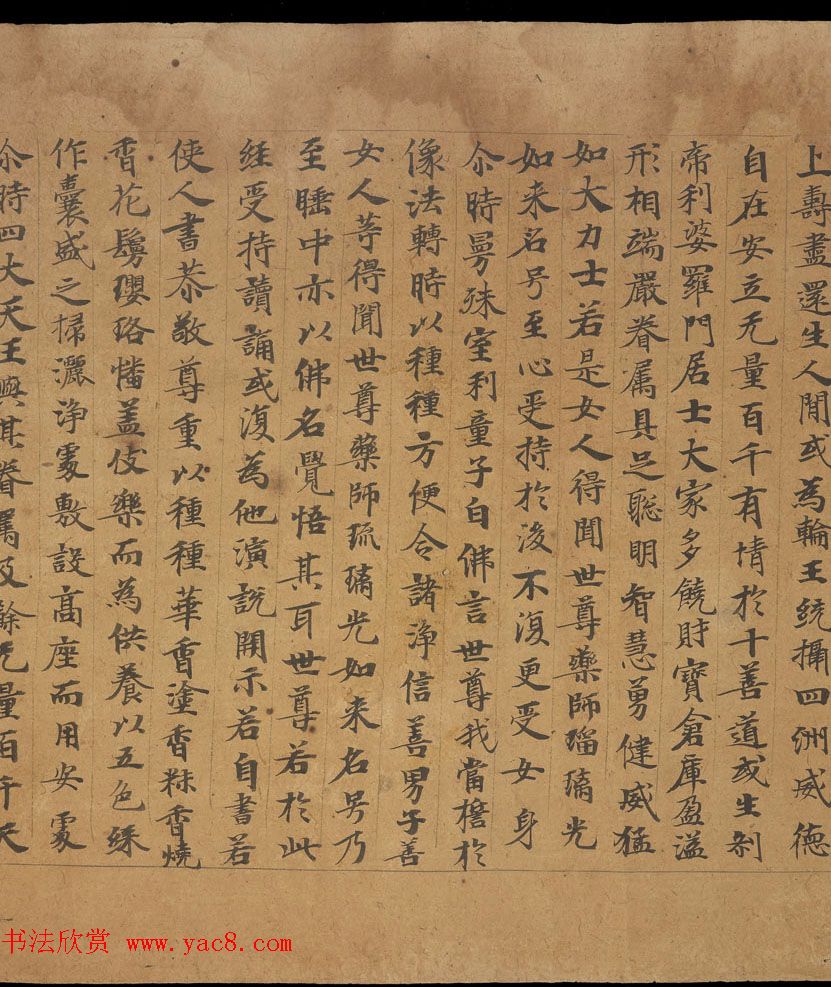 上壽盡還生人間或為輪王統攝四洲威德
自在安立无量百千有情於十善道或生刹
帝利婆羅門居士大家多饒財寶倉庫盈溢
形相端嚴眷属具足聡明智慧勇健威猛
如大力士若是女人得聞世尊藥師瑠璃光
如来名号至心受持於後不復更受女身
尒時曼殊室利童子白佛言世尊我當擔於
像法轉時以種種方便令諸淨信善男子善
女人等得聞世尊藥師琉璃光如来名号乃
至睡中亦以佛名覺悟其耳世尊若於此
經受持讀誦或復為他演說開示若自書若
使人書恭敬尊重以種種華香塗香粖香燒
香花鬘瓔珞幡盖伎樂而為供養以五色綵
作囊盛之掃灑淨處敷設髙座而用安處
尒時四大天王與其眷属及餘无量百千天
书法欣赏 www.yac8.com